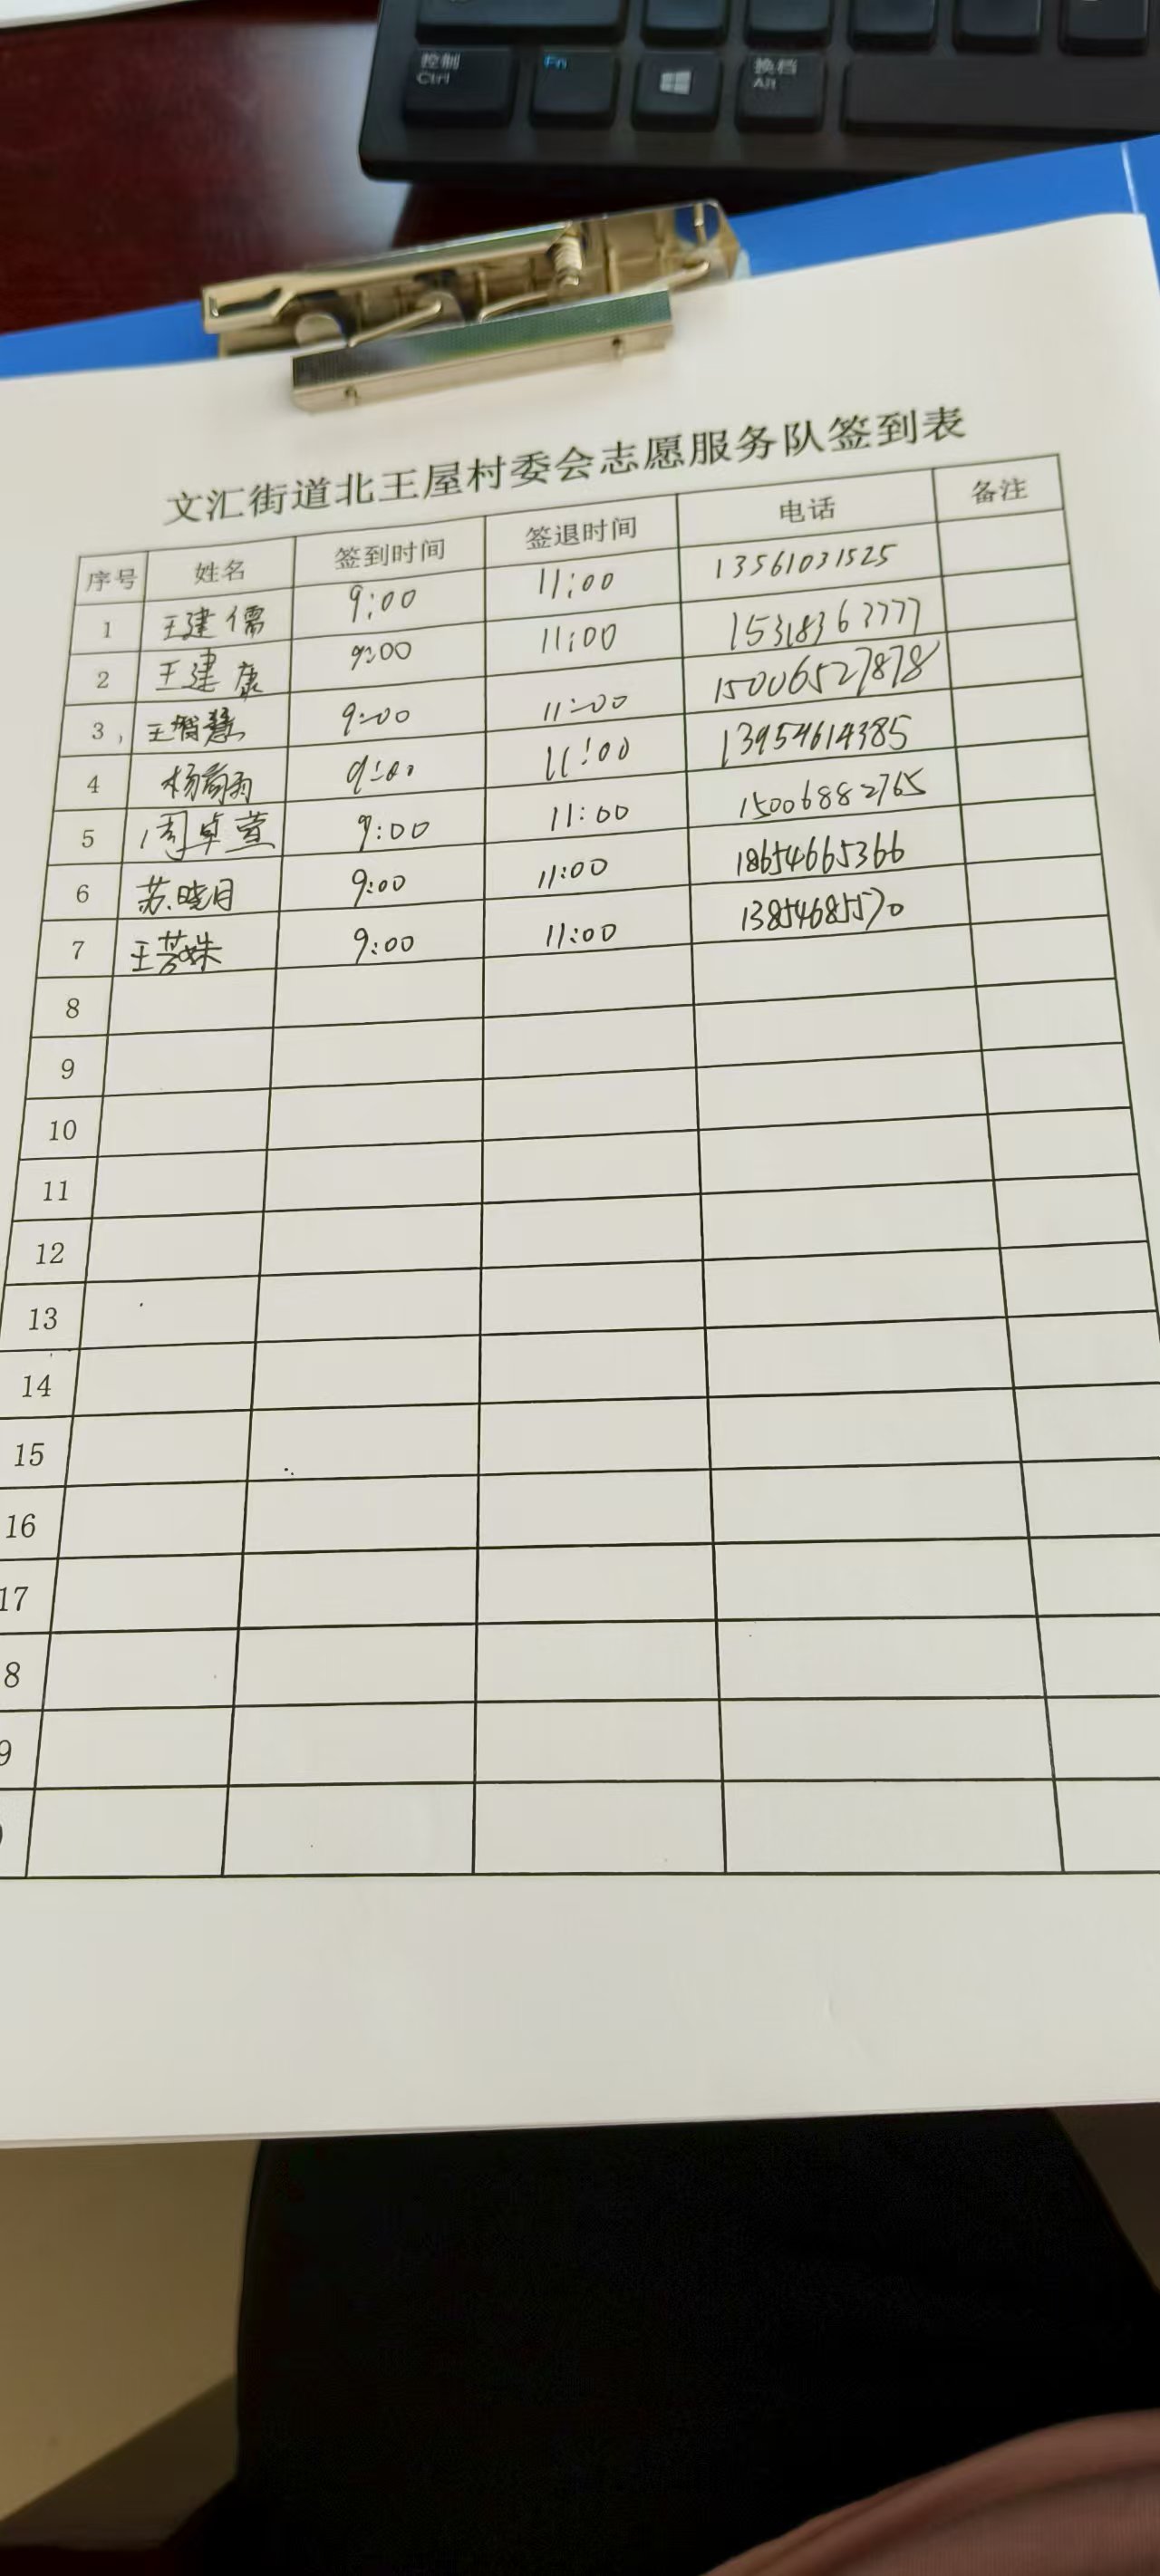 控制 Fn 换档
Ctrl Alt
文汇街道北王屋村委会志愿服务队签到表
序号 姓名 签到时间 签退时间 电话 备注
1 王建儒 9:00 11:00 13561031525
2 王建康 9:00 11:00 15318363777
3 王智慧 9:00 11:00 15006527878
4 杨雨 9:00 11:00 13954614385
5 周卓萱 9:00 11:00 15006882765
6 苏晓月 9:00 11:00 18654665366
7 王姝 9:00 11:00 13854685570
8
9
10
11
12
13
14
15
16
17
8
9